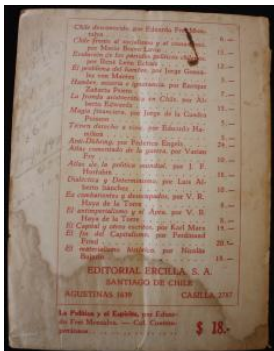 Chile desconocido, por Eduardo Frei Mon-
talva
Chile frente al socialismo y al comunismo,
por Mario Bravo Lavín
Evolución de los partidos políticos
por René León Echaíz
El problema del hambre, por Jorge Gonzá-
lez von Marées
Hambre, miseria e ignorancia, por Enrique
Zañartu Prieto
La fronda aristocrática en Chile, por Al-
berto Edwards
Magia financiera, por Jorge de la Cuadra
Poisson
Tienen derecho a vivir, por Eduardo Ha-
milton
Anti-Dühring, por Federico Engels
Atlas comentado de la guerra, por Varian
Fry
Atlas de la política mundial, por J. F.
Horrabin
Dialéctica y Determinismo, por Luis Al-
berto Sánchez
Ex combatientes y desocupados, por V. R.
Haya de la Torre
El antimperialismo y el Apra, por V. R.
Haya de la Torre
El Capital y otros escritos, por Karl Marx
El fin del Capitalismo, por Ferdinand
Fried
El materialismo histórico, por Nicolás
Bujarin
EDITORIAL ERCILLA, S. A.
SANTIAGO DE CHILE
AGUSTINAS 1639 CASILLA 2787
La Política y el Espíritu, por Eduar-
do Frei Montalva. — Col. Contem-
poráneos $ 18.-